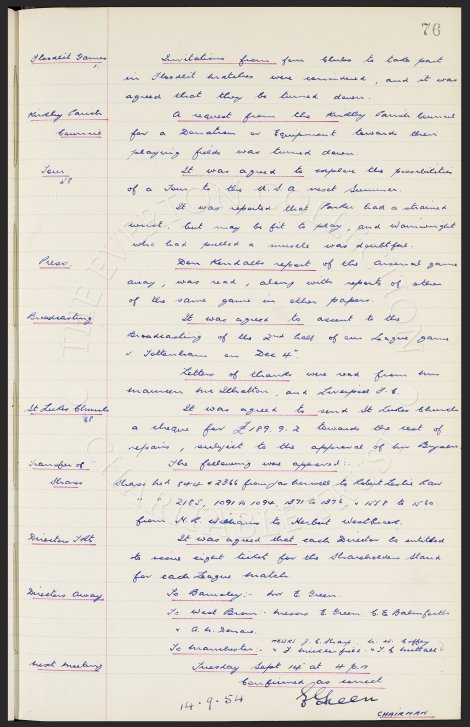 76
Floodlit Games Invitations from four Clubs to take part
in Floodlit matches were considered, and it was
agreed that they be turned down.
Kirkby Parish A request from the Kirkby Parish Council
Council for a Donation or Equipment towards their
playing fields was turned down.
Tour It was agreed to explore the possibilities
of a Tour to the U.S.A. next Summer.
It was reported that Parker had a strained
wrist, but may be fit to play, and Wainwright
who had pulled a muscle was doubtful.
Press. Don Kendalls report of the Arsenal game
away, was read, along with reports of other
of the same game in other papers.
Broadcasting It was agreed to assent to the
Broadcasting of the 2nd half of our League game
v Tottenham on Dec 4th.
Letters of thanks were read from
and Liverpool F.C.
St Lukes Church It was agreed to send St Lukes Church
a cheque for £189.9.2 towards the cost of
repairs, subject to the approval of Mr Bryson.
Transfer of The following were approved:-
Shares Shares Nos 844 & 2366 from to Robert Leslie
" 2183, 1091 to 1094, 1371 to 1376, & 1558 to 1560
from Williams to Herbert Westbrook.
Directors Tkt It was agreed that each Director be entitled
to issue eight ticket for the Shareholders Stand
for each League match
Directors Away To Barnsley:- Mr E. Green.
To West Brom:- Messrs E. Green, C.E. Balmforth
& A. W. Denaro.
To Manchester:- Messrs J.C. Sharp, W. W. Coffey
& F. Micklesfield. & T.C. Nuttall
Next Meeting Tuesday Sept 14th at 4 p.m
Confirmed as correct
14.9.54 E Green
CHAIRMAN.
THE EVERTON COLLECTION
CHARITABLE TRUST